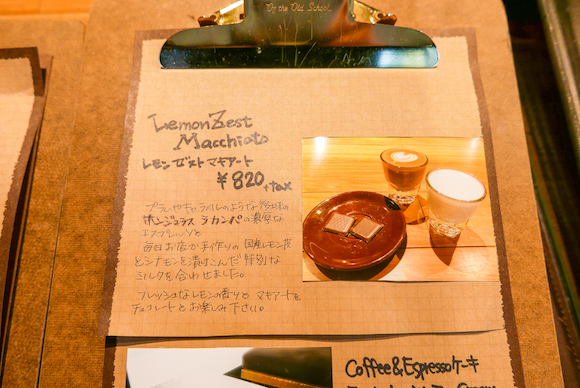 By the Old School
Lemon Zest
Macchiato
レモンゼスト マキアート
¥820+tax
プラムやキャラメルのような後味の
ホンジュラス ラ カンパの濃厚な
エスプレッソと
毎日お店で手作りの国産レモン皮
とシナモンを漬けこんだ特別な
ミルクを合わせました。
フレッシュなレモンの香りと マキアートを
チョコレートとお楽しみ下さい。
Coffee&Espressoケーキ